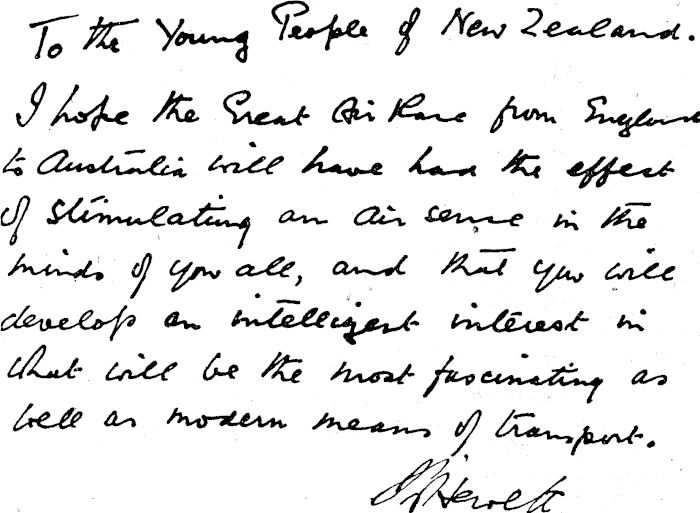 To the Young People of New Zealand.
I hope the Great Air Race from England
to Australia will have had the effect
of stimulating an air sense in the
minds of you all, and that you will
develop an intelligent interest in
what will be the most fascinating as
well as modern means of transport.
Hewett